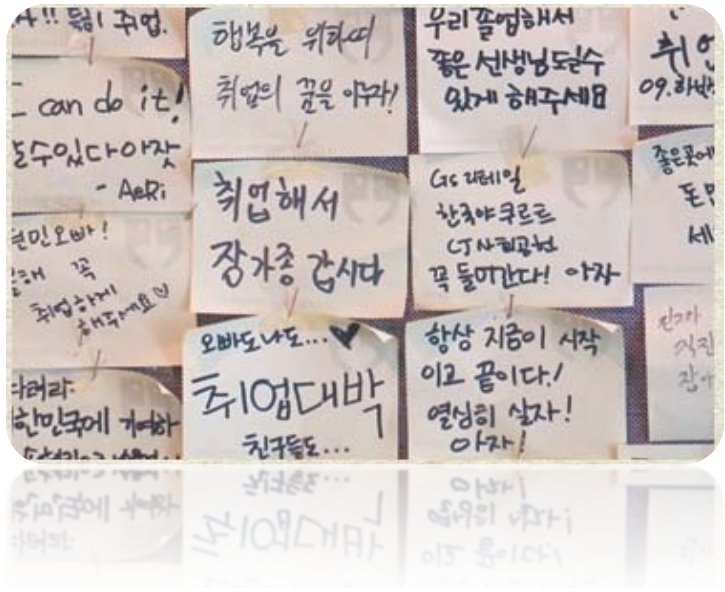 취업.
I can do it!
할수있다아잣
- AeRi
오빠!
꼭
취업하게
해주세요♡
한민국에 기여하
행복을 위하여
취업의 꿈을 이루자!
취업해서
장가좀 갑시다
오빠도나도...♥
취업대박
친구들도...
우리졸업해서
좋은선생님도될수
있게 해주세요
GS리테일
한국야쿠르트
CJ사회공헌
꼭 들어간다! 아자
항상 지금이 시작
이고 끝이다!
열심히 살자!
아자!
취업
09.
좋은곳에
돈
세